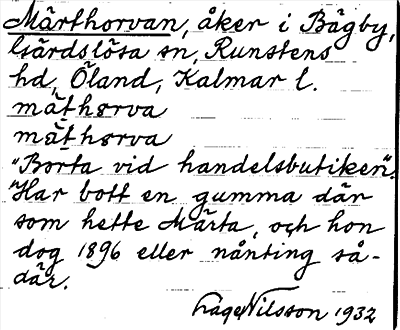 Märthorvan, åker i Bägby,
Gärdslösa sn, Runstens
hd, Öland, Kalmar l.
mäthorva
mäthorva
"Borta vid handelsbutiken".
"Har bott en gumma där
som hette Märta, och hon
dog 1896 eller nånting så-
där.
Lage Nilsson 1932